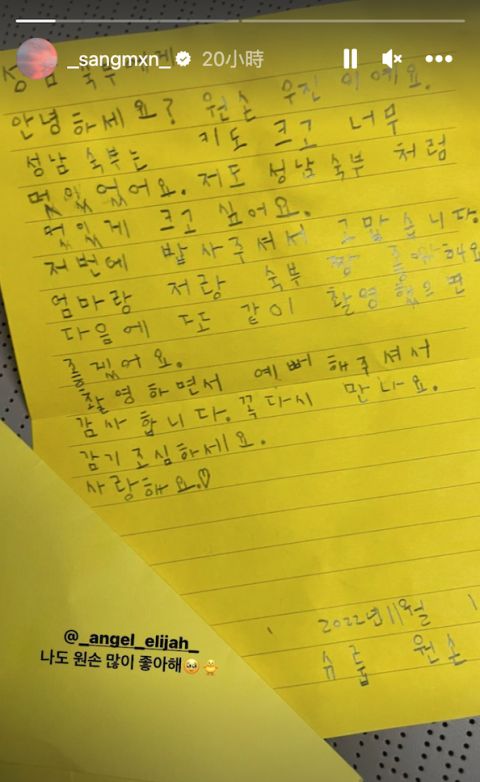 _sangmxn_ 20小時
성남 숙부에게
안녕하세요? 원손 우진이예요.
성남 숙부는 키도 크고 너무
멋있었어요. 저도 성남 숙부 처럼
멋있게 크고 싶어요.
저번에 밥 사주셔서 고맙습니다.
엄마랑 저랑 숙부 짱 좋아해요
다음에 또 같이 촬영했으면
좋겠어요.
촬영하면서 예뻐해주셔서
감사합니다. 꼭 다시 만나요.
감기 조심하세요.
사랑해요♡
2022년 11월 1
슈룹 원손
@_angel_elijah_
나도 원손 많이 좋아해🥹🐥